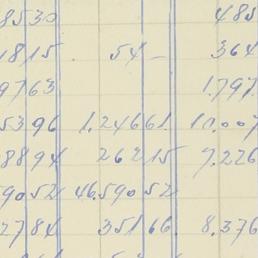 8530 485
1815 54 - 364
9763 1.797
5396 1.24661 10.007
8894 26215 7.226
59052 46.59052
2784 35166 8.376